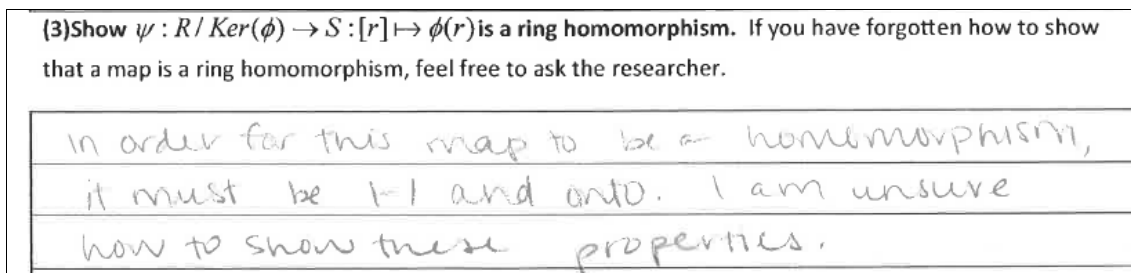 (3)Show ψ : R / Ker(ϕ) → S : [r] ↦ ϕ(r) is a ring homomorphism. If you have forgotten how to show
that a map is a ring homomorphism, feel free to ask the researcher.
In order for this map to be a homomorphism,
it must be 1-1 and onto. I am unsure
how to show these properties.